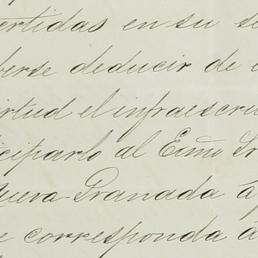 ertidas en su se
berse deducir de e
irtud el infraescri
iciparlo al Exmo Sr
ueva Granada á f
e corresponda á